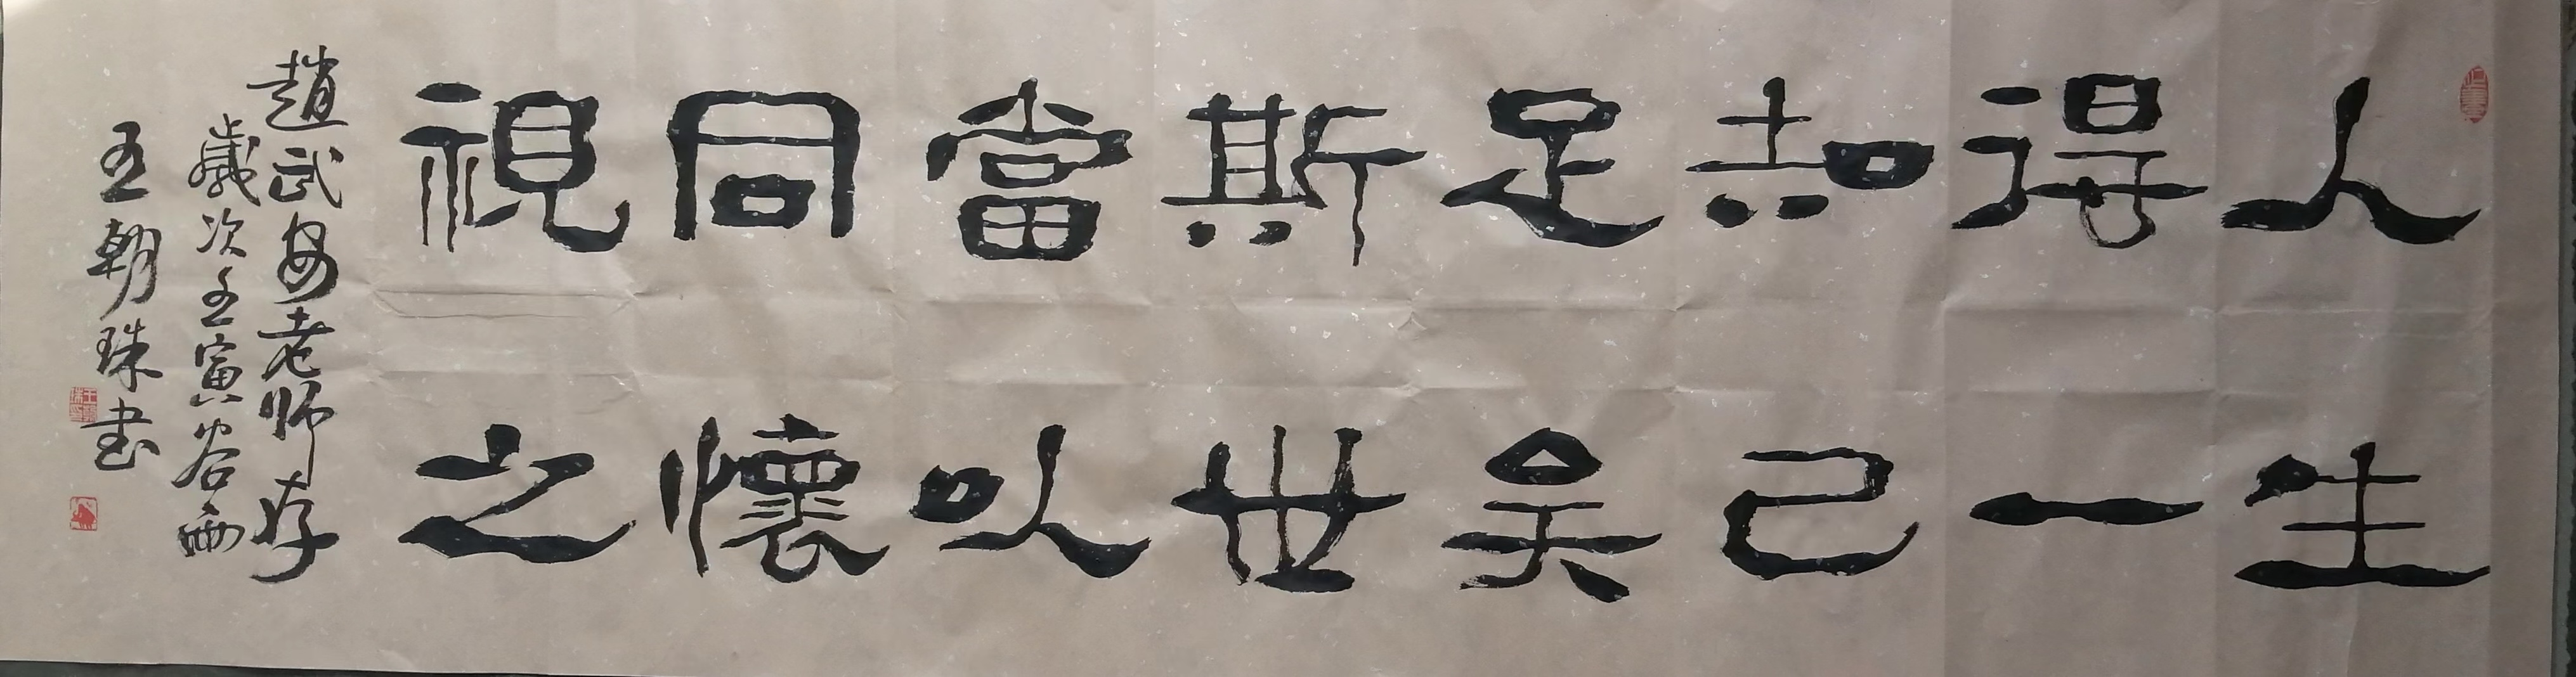 人生
得一
知己
足矣
斯世
當以
同懷
視之
趙武安老师存
歲次壬寅谷雨
王朝珠書